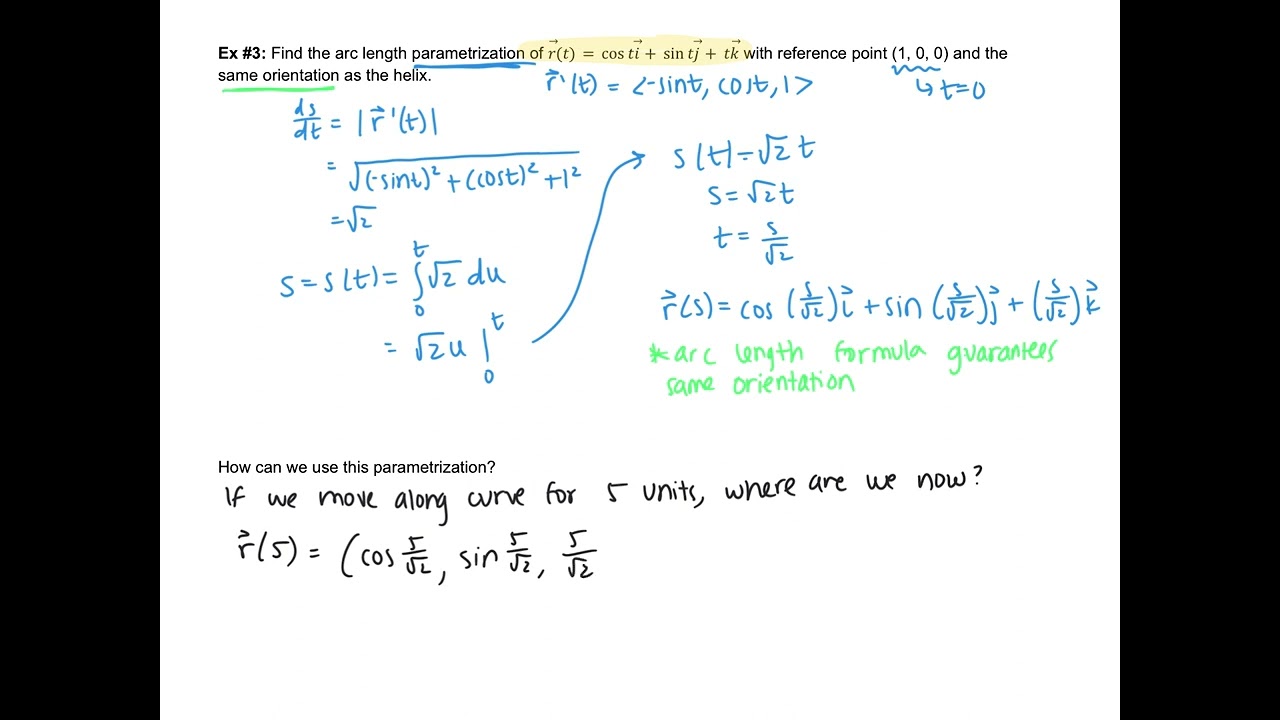 Ex #3: Find the arc length parametrization of r⃗(t) = cos t i⃗ + sin t j⃗ + t k⃗ with reference point (1, 0, 0) and the
same orientation as the helix.
r⃗'(t) = <-sint, cost, 1>
↳ t=0
ds/dt = |r⃗'(t)|
= √((-sint)² + (cost)² + 1²)
= √2
s = s(t) = ∫₀ᵗ √2 du
= √2 u |₀ᵗ
s(t) = √2 t
s = √2 t
t = s/√2
r⃗(s) = cos (s/√2) i⃗ + sin (s/√2) j⃗ + (s/√2) k⃗
* arc length formula guarantees
same orientation
How can we use this parametrization?
If we move along curve for 5 units, where are we now?
r⃗(5) = (cos 5/√2, sin 5/√2, 5/√2